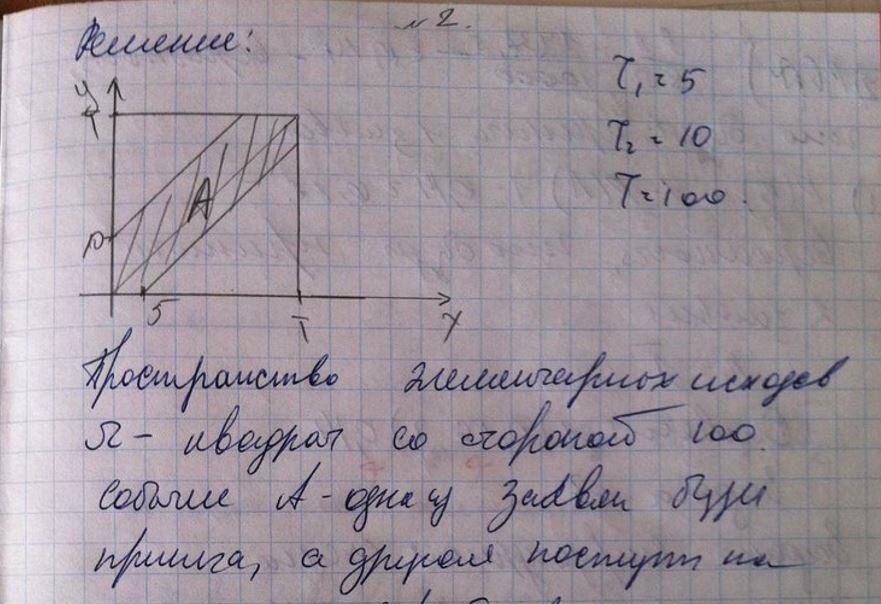 №2.
Решение:
τ₁ = 5
τ₂ = 10
T = 100.
y
T
A
10
5
T
x
Пространство элементарных исходов
Ω - квадрат со стороной 100.
событие A - одна из заявок буде
пришла, а другая поступит на